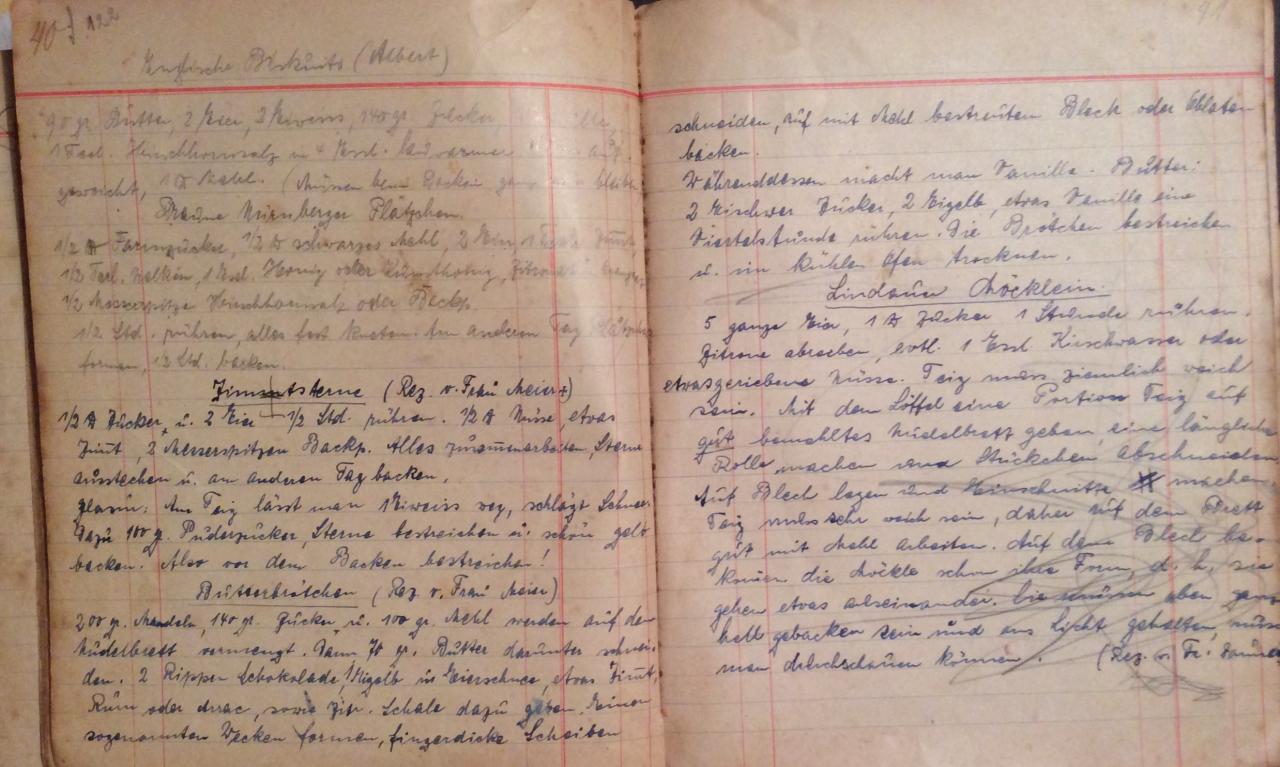 40 122
Englische Biskuits (Albert)
90 gr. Butter, 2 Eier, 2 Eiweiss, 140 gr. Zucker,
1 Essl. Hirschhornsalz in 4 Essl. lauwarmer
geweicht, 1 ℔ Mehl. (Müssen beim Backen ganz
Braune Nürnberger Plätzchen.
1/2 ℔ Farinzucker, 1/2 ℔ schwarzes Mehl, 2 Eier, 1 Zimt,
1/2 Teel. Nelken, 1 Essl. Honig oder Kunsthonig, Zitronat
1/2 Messerspitze Hirschhornsalz oder Backp.
1/2 Std. rühren, alles fest kneten. Am anderen Tag Plätzchen
formen, 1/2 Std. backen.
Zimmtsterne (Rez. v. Frau Meier+)
1/2 ℔ Zucker u. 2 Eier 1/2 Std. rühren. 1/2 ℔ Nüsse, etwas
Zimt, 2 Messerspitzen Backp. Alles zusammenarbeiten, Sterne
ausstechen u. am anderen Tag backen.
Glasur: Am Teig lässt man 1 Eiweiss weg, schlägt Schnee
Dazu 100 g. Puderzucker, Sterne bestreichen u. schön gelb
backen. Also vor dem Backen bestreichen!
Butterbrötchen (Rez. v. Frau Meier)
200 gr. Mandeln, 140 gr. Zucker u. 100 gr. Mehl werden auf dem
Nudelbrett vermengt. Dann 70 gr. Butter darunter schnei-
den. 2 Rippen Schokolade, 1 Eigelb in Eierschnee, etwas Zimt,
Rum oder Arrac, sowie Zitr. Schale dazu geben. Einen
sogenannten Wecken formen, fingerdicke Scheiben
41
schneiden, auf mit Mehl bestreuten Blech oder Oblaten
backen.
Währenddessen macht man Vanille-Butter:
2 Eischwer Zucker, 2 Eigelb, etwas Vanille eine
Viertelstunde rühren. Die Brötchen bestreichen
u. im kühlen Ofen trocknen.
Lindauer Möcklein.
5 ganze Eier, 1 ℔ Zucker 1 Stunde rühren.
Zitrone abreiben, evtl. 1 Essl Kirschwasser oder
etwas geriebene Nüsse. Teig muss ziemlich weich
sein. Mit dem Löffel eine Portion Teig auf
gut bemehltes Nudelbrett geben, eine längliche
Rolle machen und Stückchen abschneiden
Auf Blech legen und Einschnitte machen
Teig muss sehr weich sein, daher auf dem Brett
gut mit Mehl arbeiten. Auf dem Blech be-
kommen die Möckle schon ihre Form, d. h. sie
gehen etwas auseinander. Sie müssen aber ganz
hell gebacken sein und ans Licht gehalten, muss
man durchschauen können. (Rez. v. Fr.